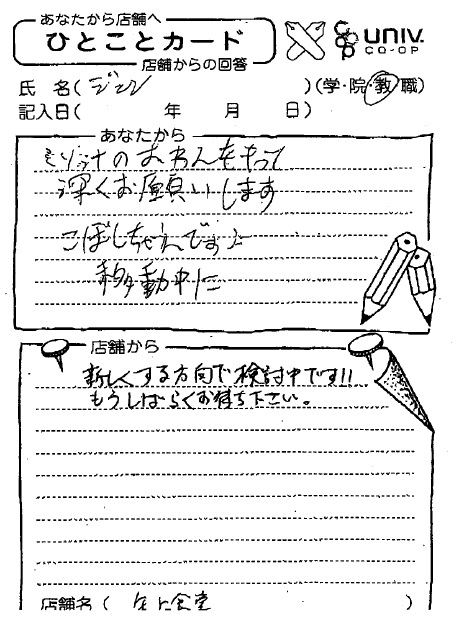 あなたから店舗へ
ひとことカード
店舗からの回答
UNIV.
CO-OP
氏 名(ジェン)(学・院・教・職)
記入日( 年 月 日)
あなたから
ミソ汁のおわんをもって
深くお願いします
こぼしちゃうんです♪
移動中に
店舗から
新しくする方向で検討中です!!
もうしばらくお待ち下さい。
店舗名( 食堂 )